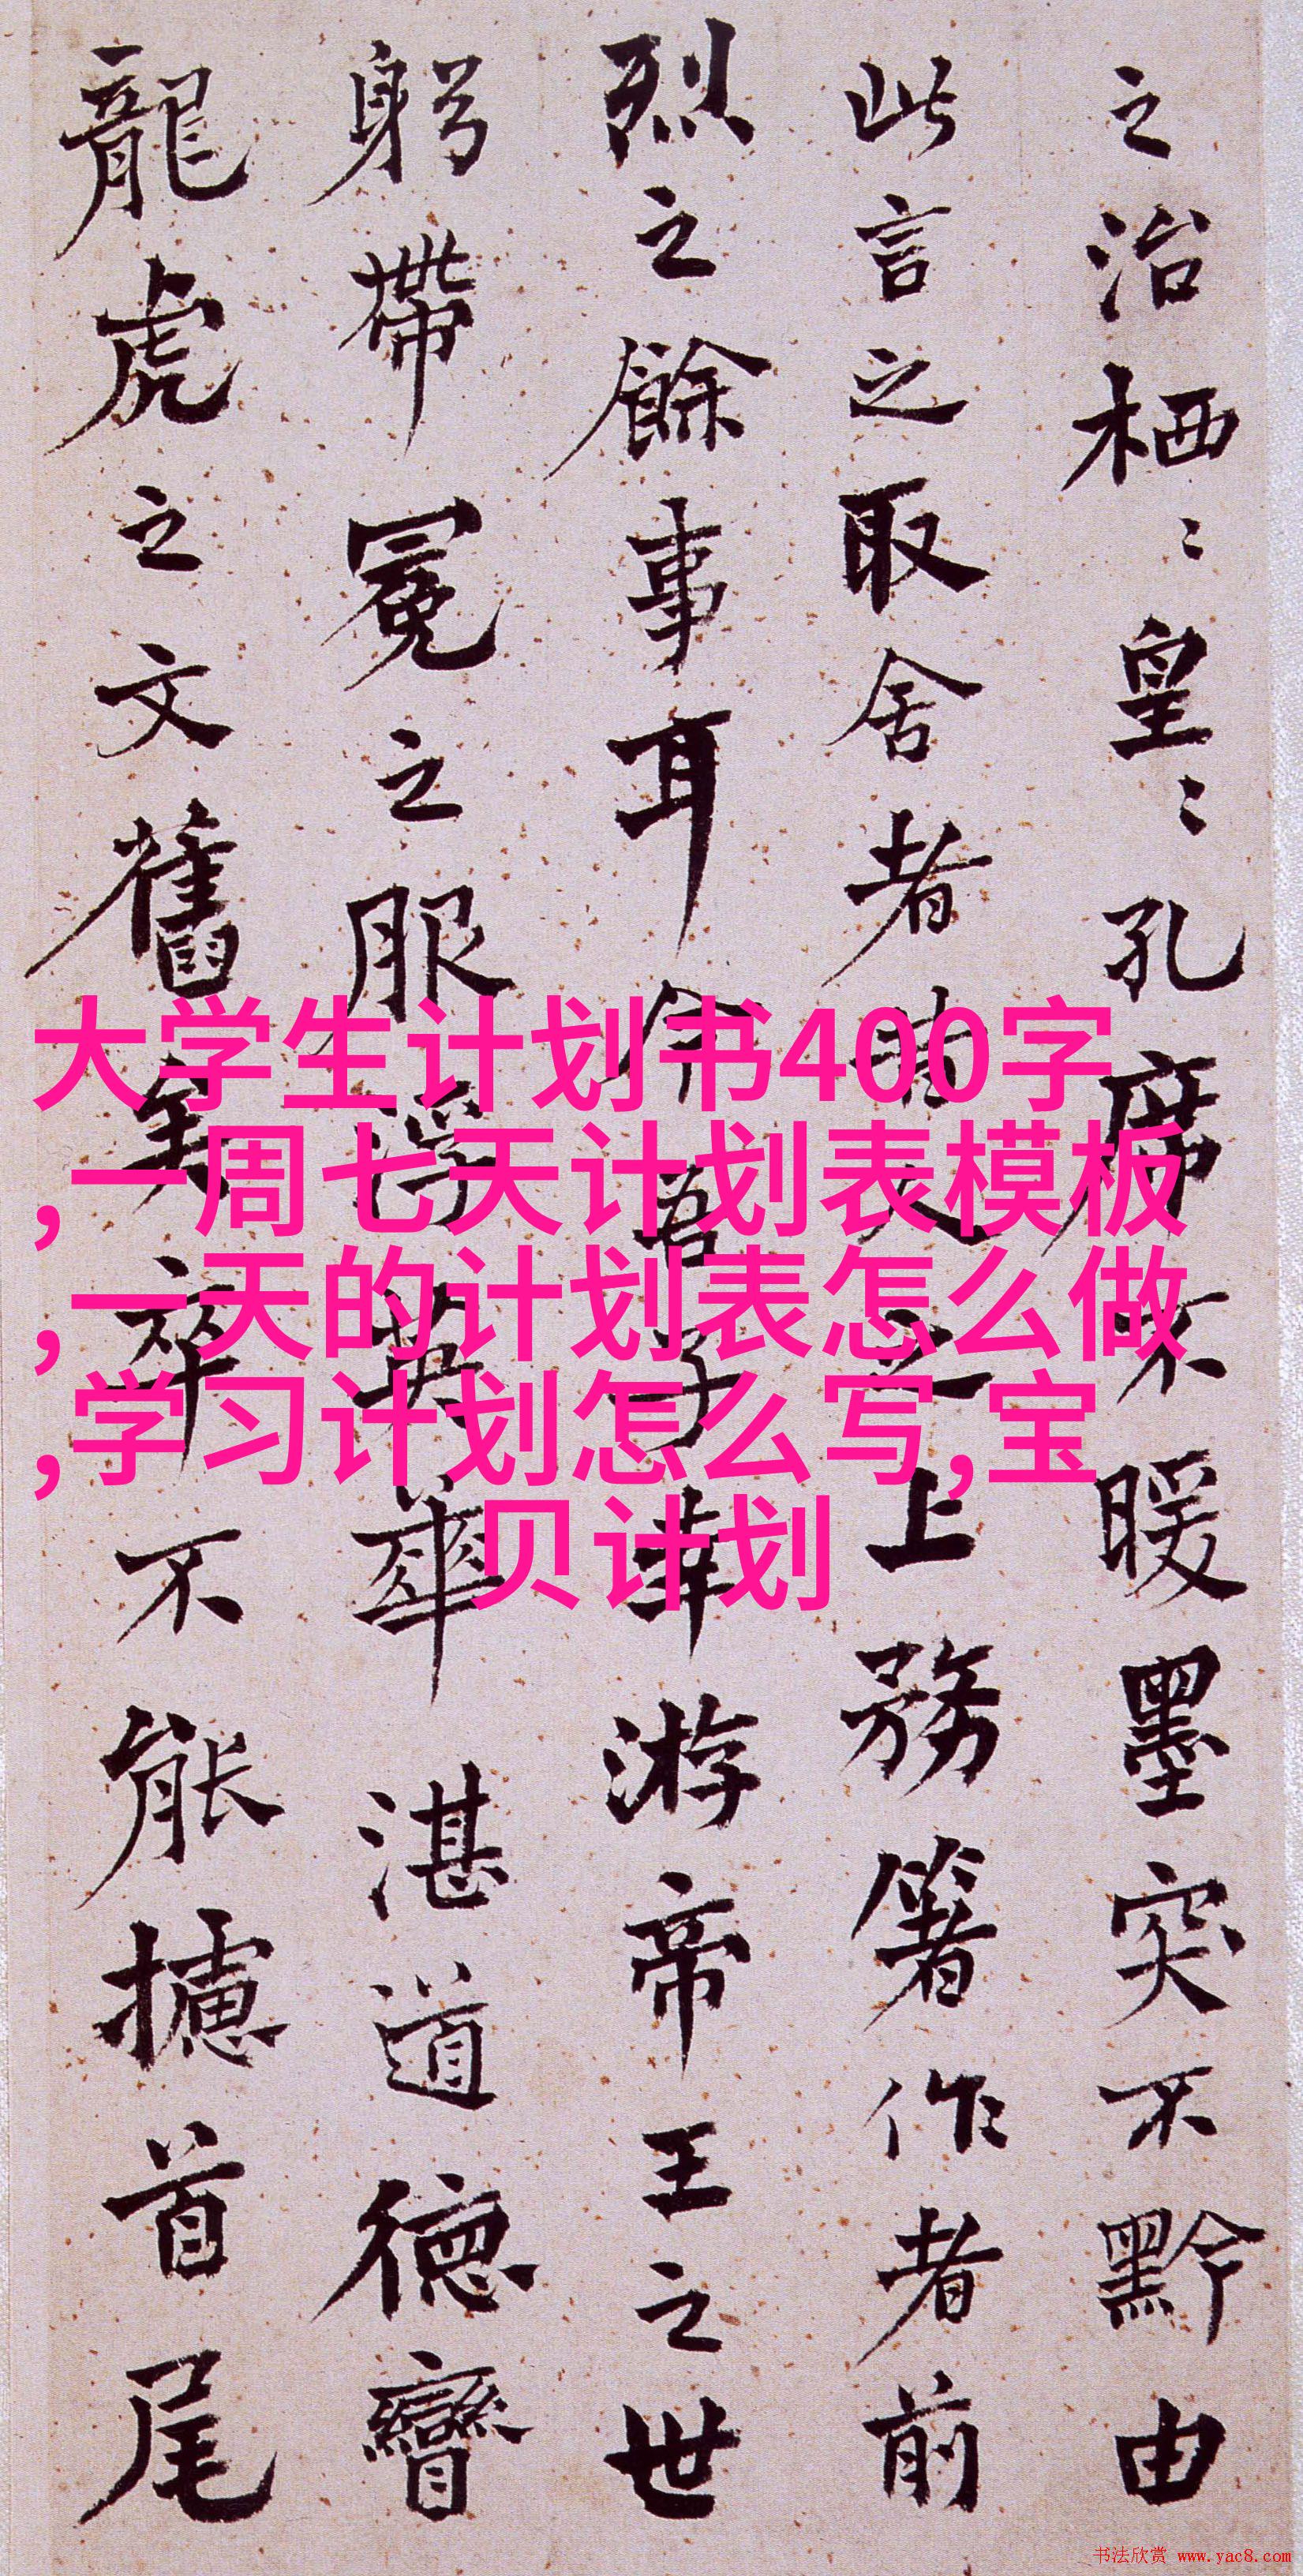 之治栖〻皇〻孔席不暖墨突不黔由
此言之取舍者昔人之上務箸作者前
烈之餘事耳今吾子幸游帝王之世
躬帶冕之服浮英華湛道德矕
龍虎之文舊矣卒不能攄首尾
大学生计划书400字
,一周七天计划表模板
,一天的计划表怎么做
,学习计划怎么写,宝
贝计划
书法欣赏 www.yac8.com